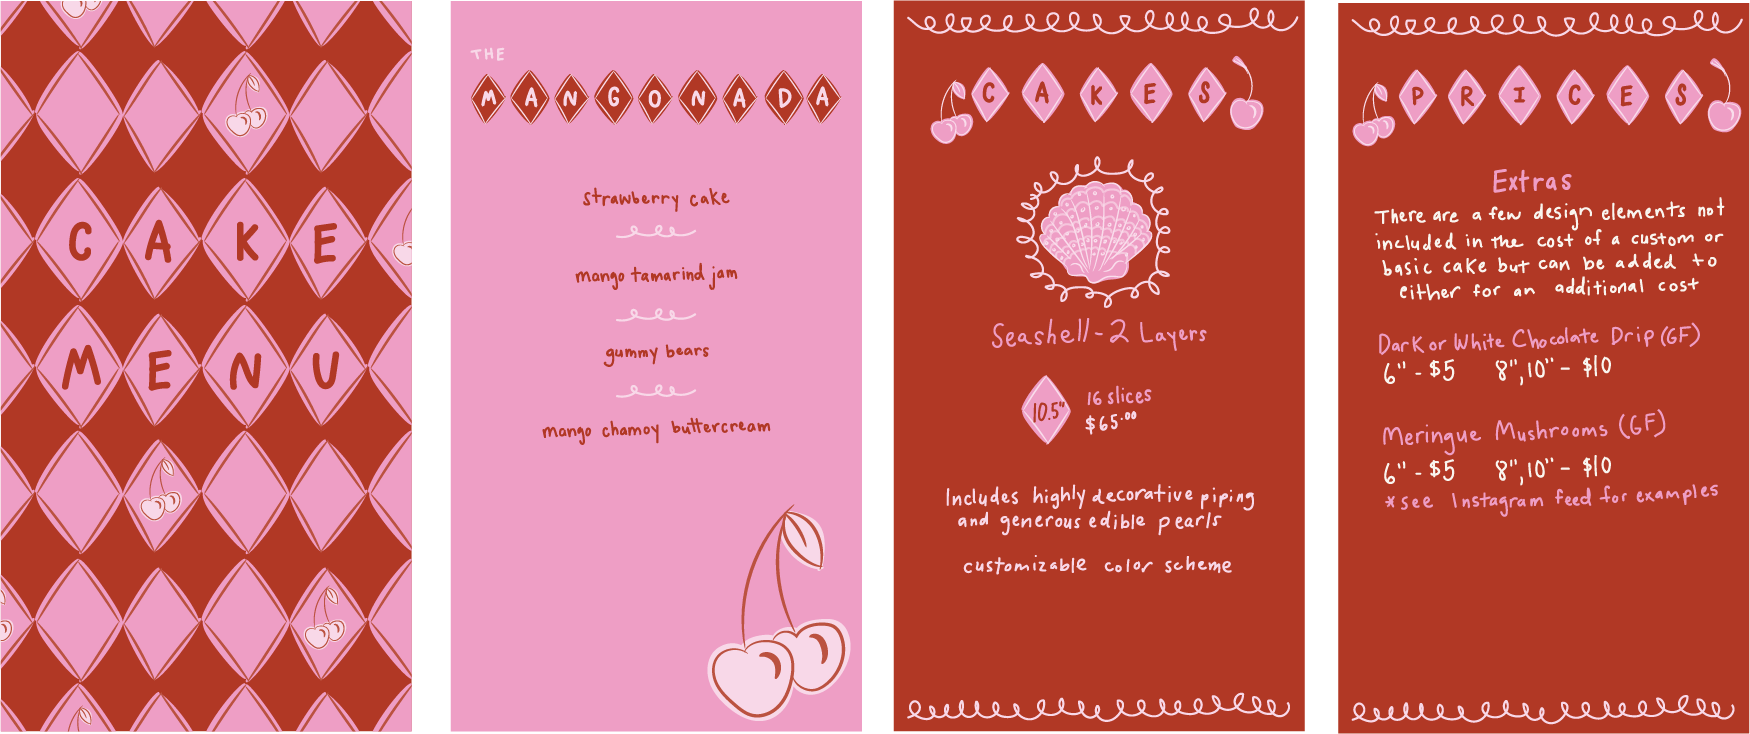 CAKE
MENU
THE
MANGONADA
strawberry cake
mango tamarind jam
gummy bears
mango chamoy buttercream
CAKES
Seashell-2 Layers
10.5"
16 slices
$65.00
Includes highly decorative piping
and generous edible pearls
customizable color scheme
PRICES
Extras
There are a few design elements not
included in the cost of a custom or
basic cake but can be added to
either for an additional cost
Dark or White Chocolate Drip (GF)
6" - $5 8", 10" - $10
Meringue Mushrooms (GF)
6" - $5 8", 10" - $10
*see Instagram feed for examples